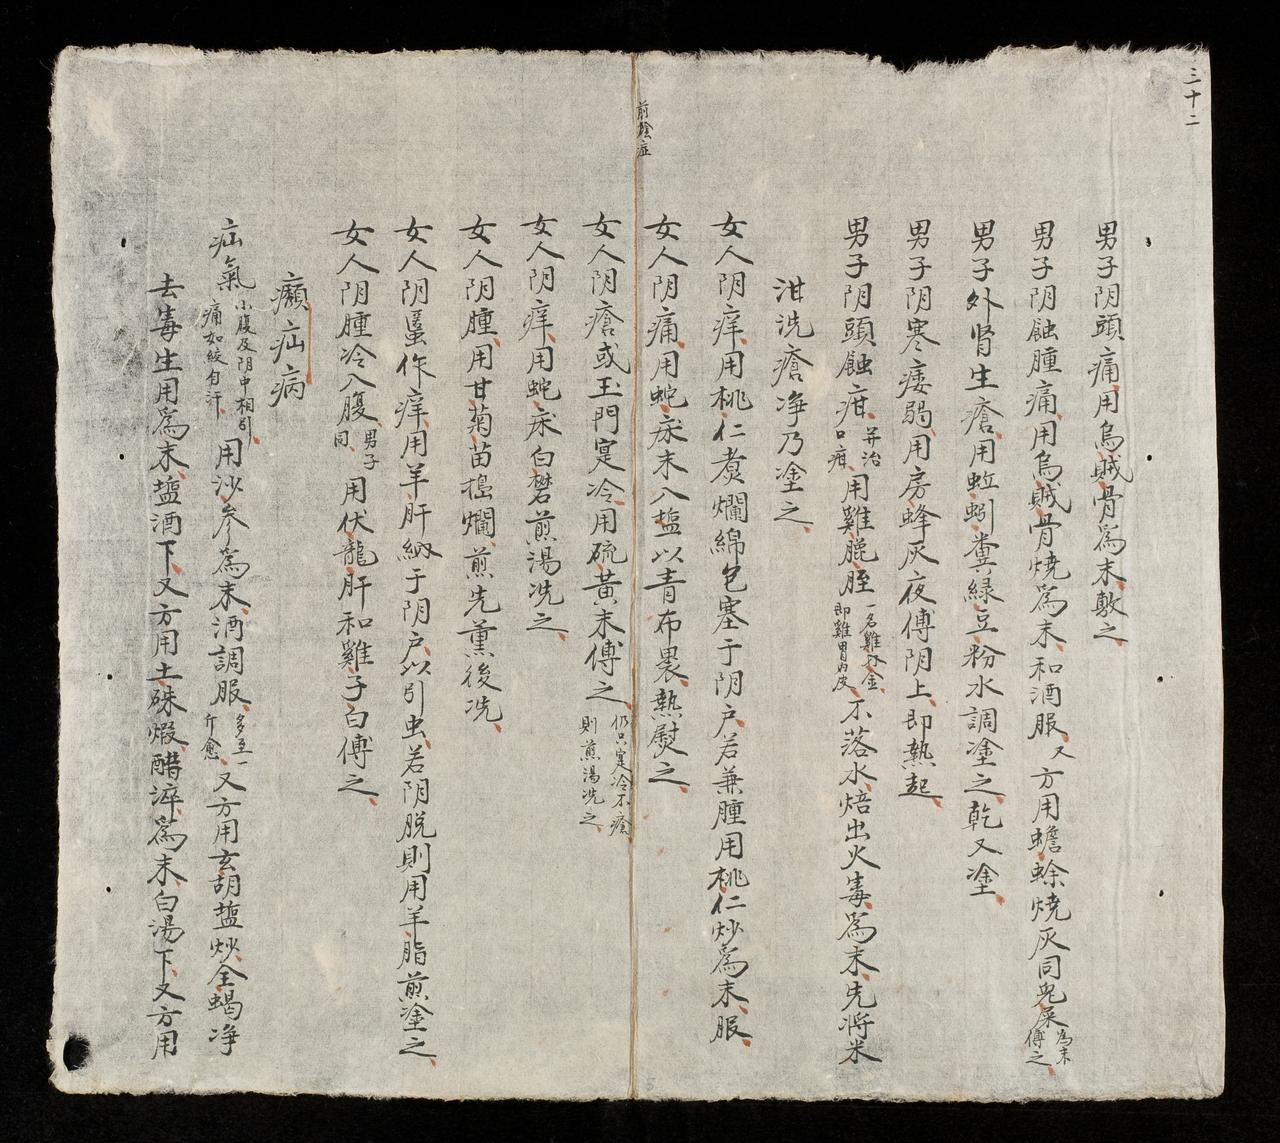 三十二
男子阴頭痛用烏賊骨爲末敷之
男子阴蝕腫痛用烏賊骨燒爲末和酒服又方用蟾蜍燒灰同兎屎爲末傅之
男子外肾生瘡用蚯蚓糞緑豆粉水調塗之乾又塗
男子阴寒痿弱用房蜂灰夜傅阴上即熱起
男子阴頭蝕疳并治口疳用雞膍胵一名雞内金即雞胃内皮不落水焙出火毒爲末先將米
泔洗瘡净乃塗之
女人阴痒用桃仁煮爛綿包塞于阴户若兼腫用桃仁炒爲末服
女人阴痛用蛇床末入盐以青布裹熱熨之
前陰症
女人阴瘡或玉門寔冷用硫黃末傅之仍只寔冷不瘡則煎湯洗之
女人阴痒用蛇床白礬煎湯洗之
女人阴腫用甘菊苗搗爛煎先薰後洗
女人阴䘌作痒用羊肝納于阴户以引虫若阴脱則用羊脂煎塗之
女人阴腫冷入腹男子同用伏龍肝和雞子白傅之
癩疝病
疝氣小腹及阴中相引痛如絞自汗用沙参爲末酒調服多至一斤愈又方用玄胡盐炒全蝎净
去毒生用爲末盐酒下又方用土硃煅醋淬爲末白湯下又方用